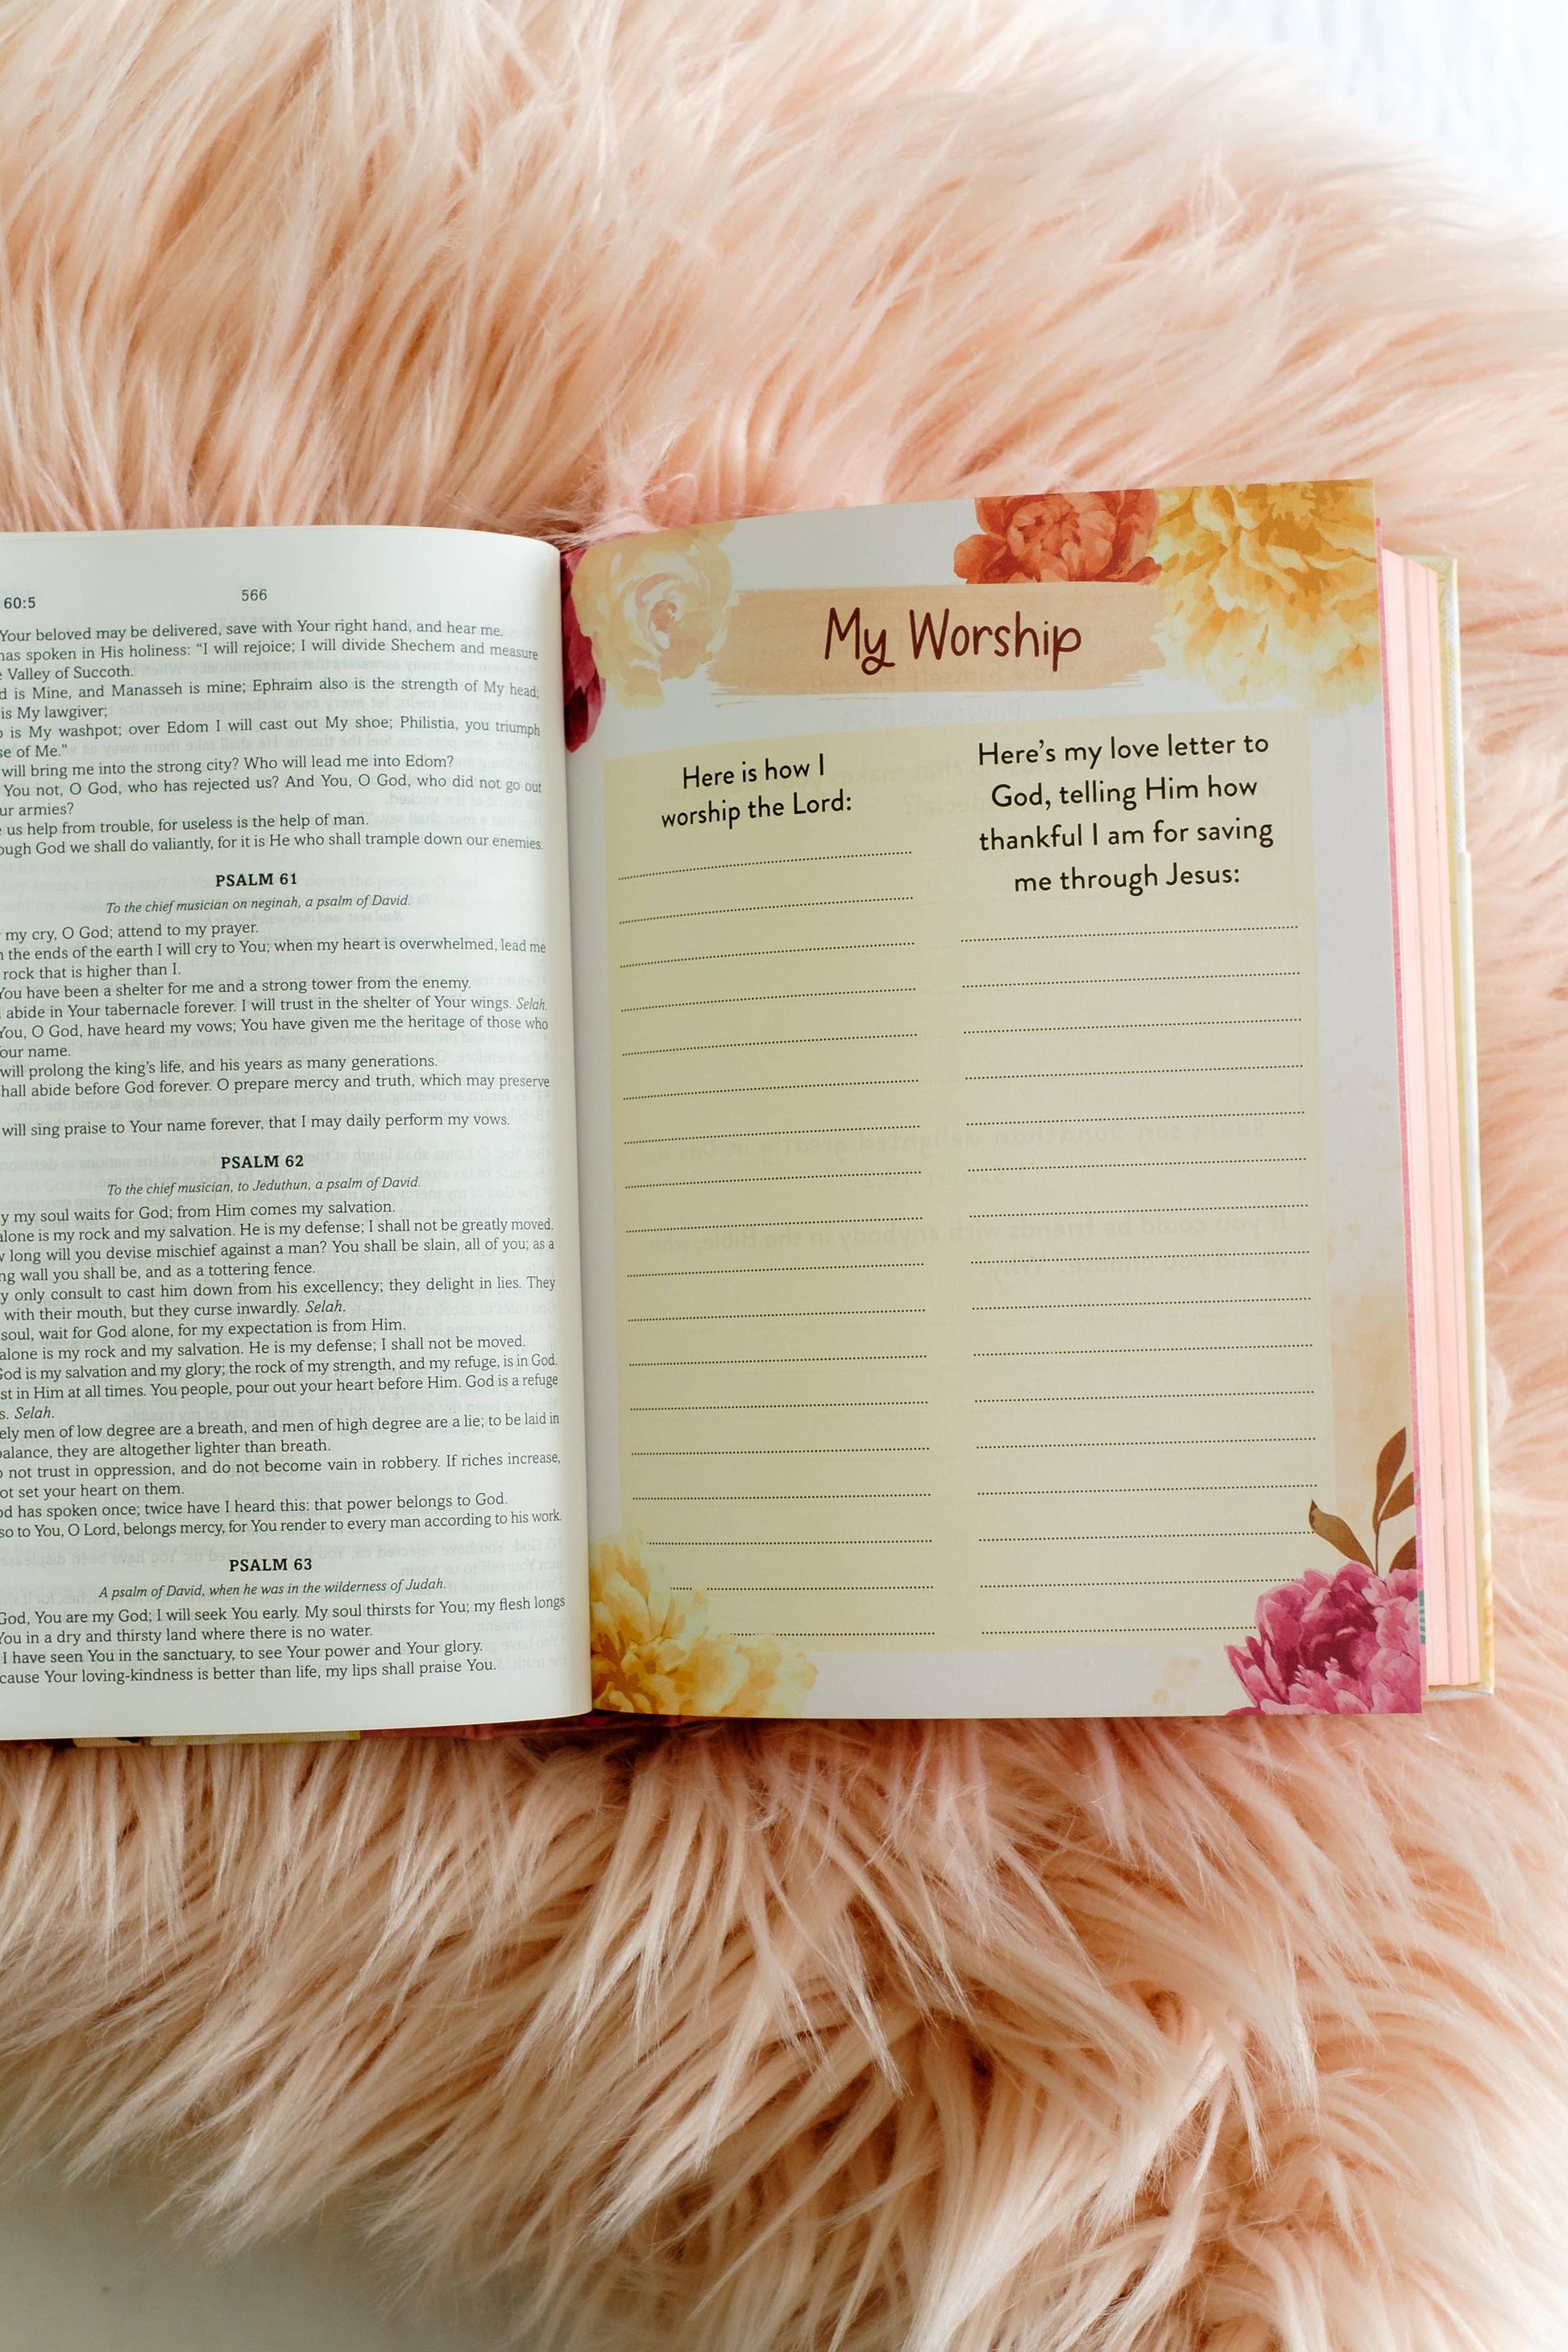 60:5 566
Your beloved may be delivered, save with Your right hand, and hear me.
has spoken in His holiness: “I will rejoice; I will divide Shechem and measure
Valley of Succoth.
is Mine, and Manasseh is mine; Ephraim also is the strength of My head;
is My lawgiver;
is My washpot; over Edom I will cast out My shoe; Philistia, you triumph
of Me.”
will bring me into the strong city? Who will lead me into Edom?
You not, O God, who has rejected us? And You, O God, who did not go out
armies?
us help from trouble, for useless is the help of man.
God we shall do valiantly, for it is He who shall trample down our enemies.
PSALM 61
To the chief musician on neginah, a psalm of David.
my cry, O God; attend to my prayer.
the ends of the earth I will cry to You; when my heart is overwhelmed, lead me
rock that is higher than I.
You have been a shelter for me and a strong tower from the enemy.
abide in Your tabernacle forever. I will trust in the shelter of Your wings. Selah.
You, O God, have heard my vows; You have given me the heritage of those who
name.
will prolong the king’s life, and his years as many generations.
shall abide before God forever. O prepare mercy and truth, which may preserve
will sing praise to Your name forever, that I may daily perform my vows.
PSALM 62
To the chief musician, to Jeduthun, a psalm of David.
my soul waits for God; from Him comes my salvation.
alone is my rock and my salvation. He is my defense; I shall not be greatly moved.
long will you devise mischief against a man? You shall be slain, all of you; as a
wall you shall be, and as a tottering fence.
only consult to cast him down from his excellency; they delight in lies. They
with their mouth, but they curse inwardly. Selah.
soul, wait for God alone, for my expectation is from Him.
alone is my rock and my salvation. He is my defense; I shall not be moved.
God is my salvation and my glory; the rock of my strength, and my refuge, is in God.
in Him at all times. You people, pour out your heart before Him. God is a refuge
Selah.
men of low degree are a breath, and men of high degree are a lie; to be laid in
balance, they are altogether lighter than breath.
not trust in oppression, and do not become vain in robbery. If riches increase,
set your heart on them.
has spoken once; twice have I heard this: that power belongs to God.
to You, O Lord, belongs mercy, for You render to every man according to his work.
PSALM 63
A psalm of David, when he was in the wilderness of Judah.
God, You are my God; I will seek You early. My soul thirsts for You; my flesh longs
You in a dry and thirsty land where there is no water.
I have seen You in the sanctuary, to see Your power and Your glory.
Your loving-kindness is better than life, my lips shall praise You.
My Worship
Here is how I
worship the Lord:
Here’s my love letter to
God, telling Him how
thankful I am for saving
me through Jesus: